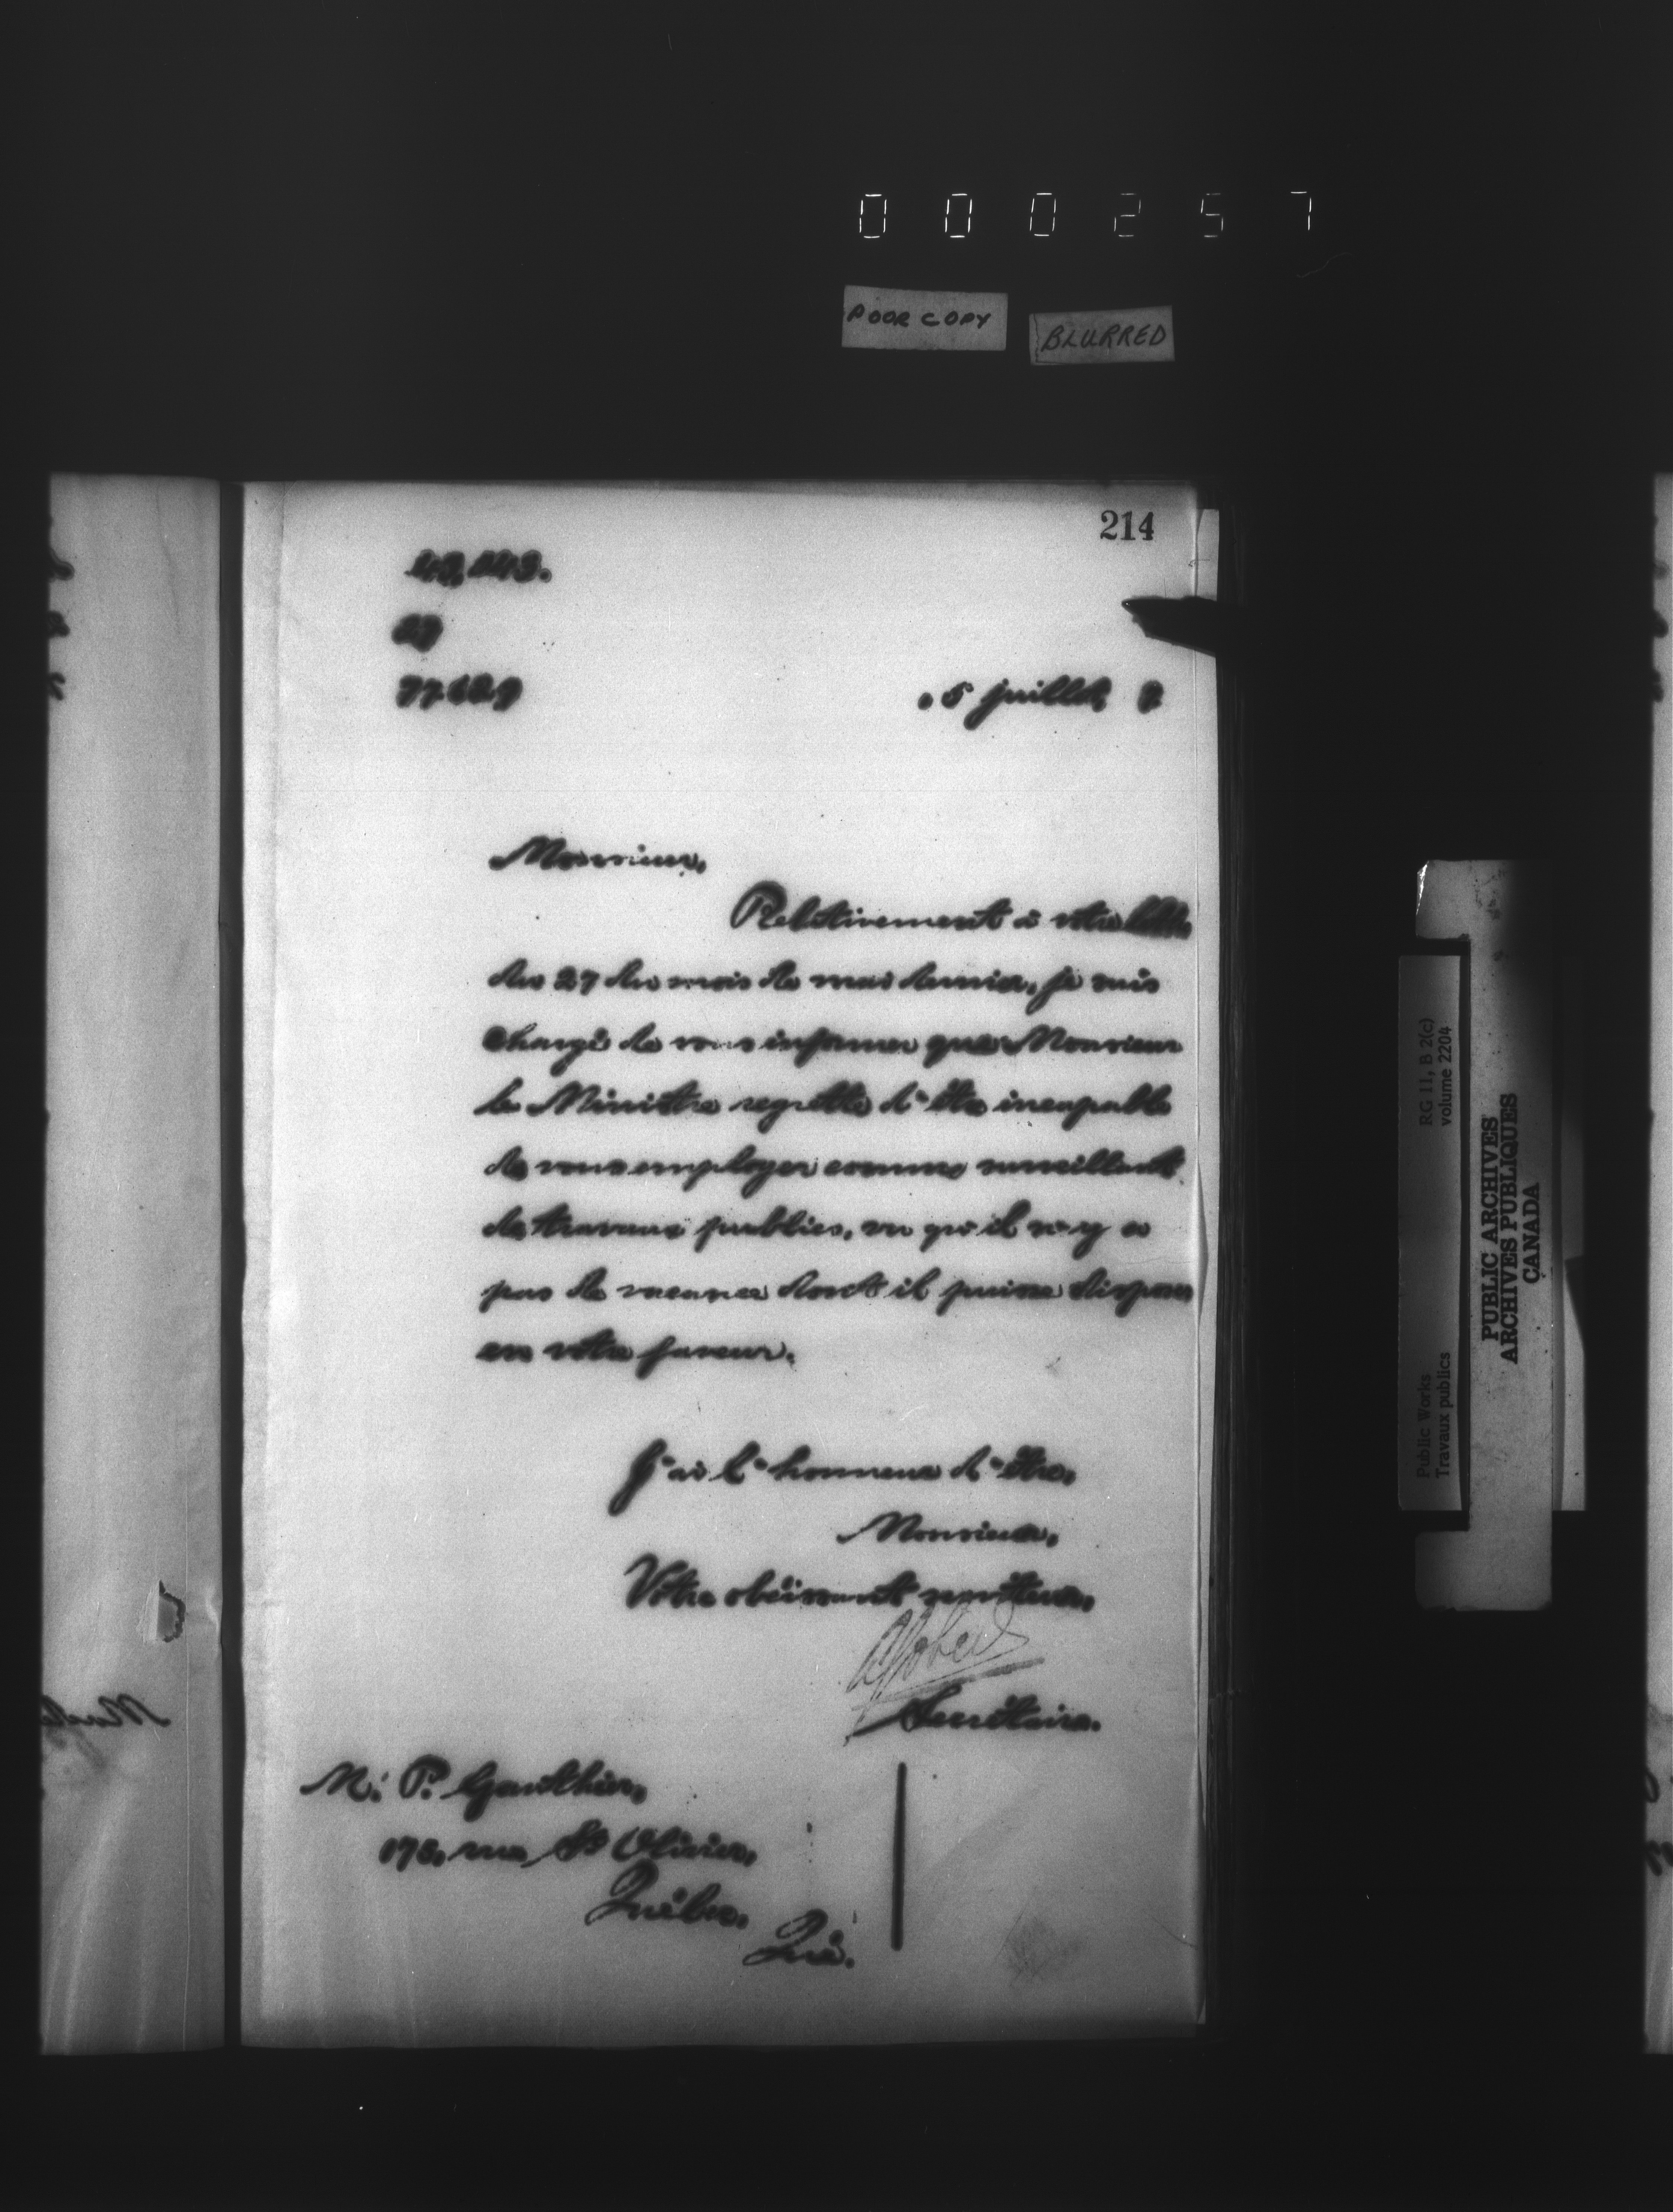 000257
POOR COPY
BLURRED
214
5 juillet 7
Monsieur,
Relativement à votre lettre
du 27 du mois de mai dernier, je suis
chargé de vous informer que Monsieur
le Ministre regrette d'être incapable
de vous employer comme surveillant
de travaux publics, vu qu'il n'y a
pas de vacance dont il puisse disposer
en votre faveur.
J'ai l'honneur d'être,
Monsieur,
Votre obéissant serviteur,
Secrétaire.
M. P. Gauthier,
178, rue St Olivier,
Québec,
Qué.
Public Works
Travaux publics
RG 11, B 2(c)
volume 2204
PUBLIC ARCHIVES
ARCHIVES PUBLIQUES
CANADA